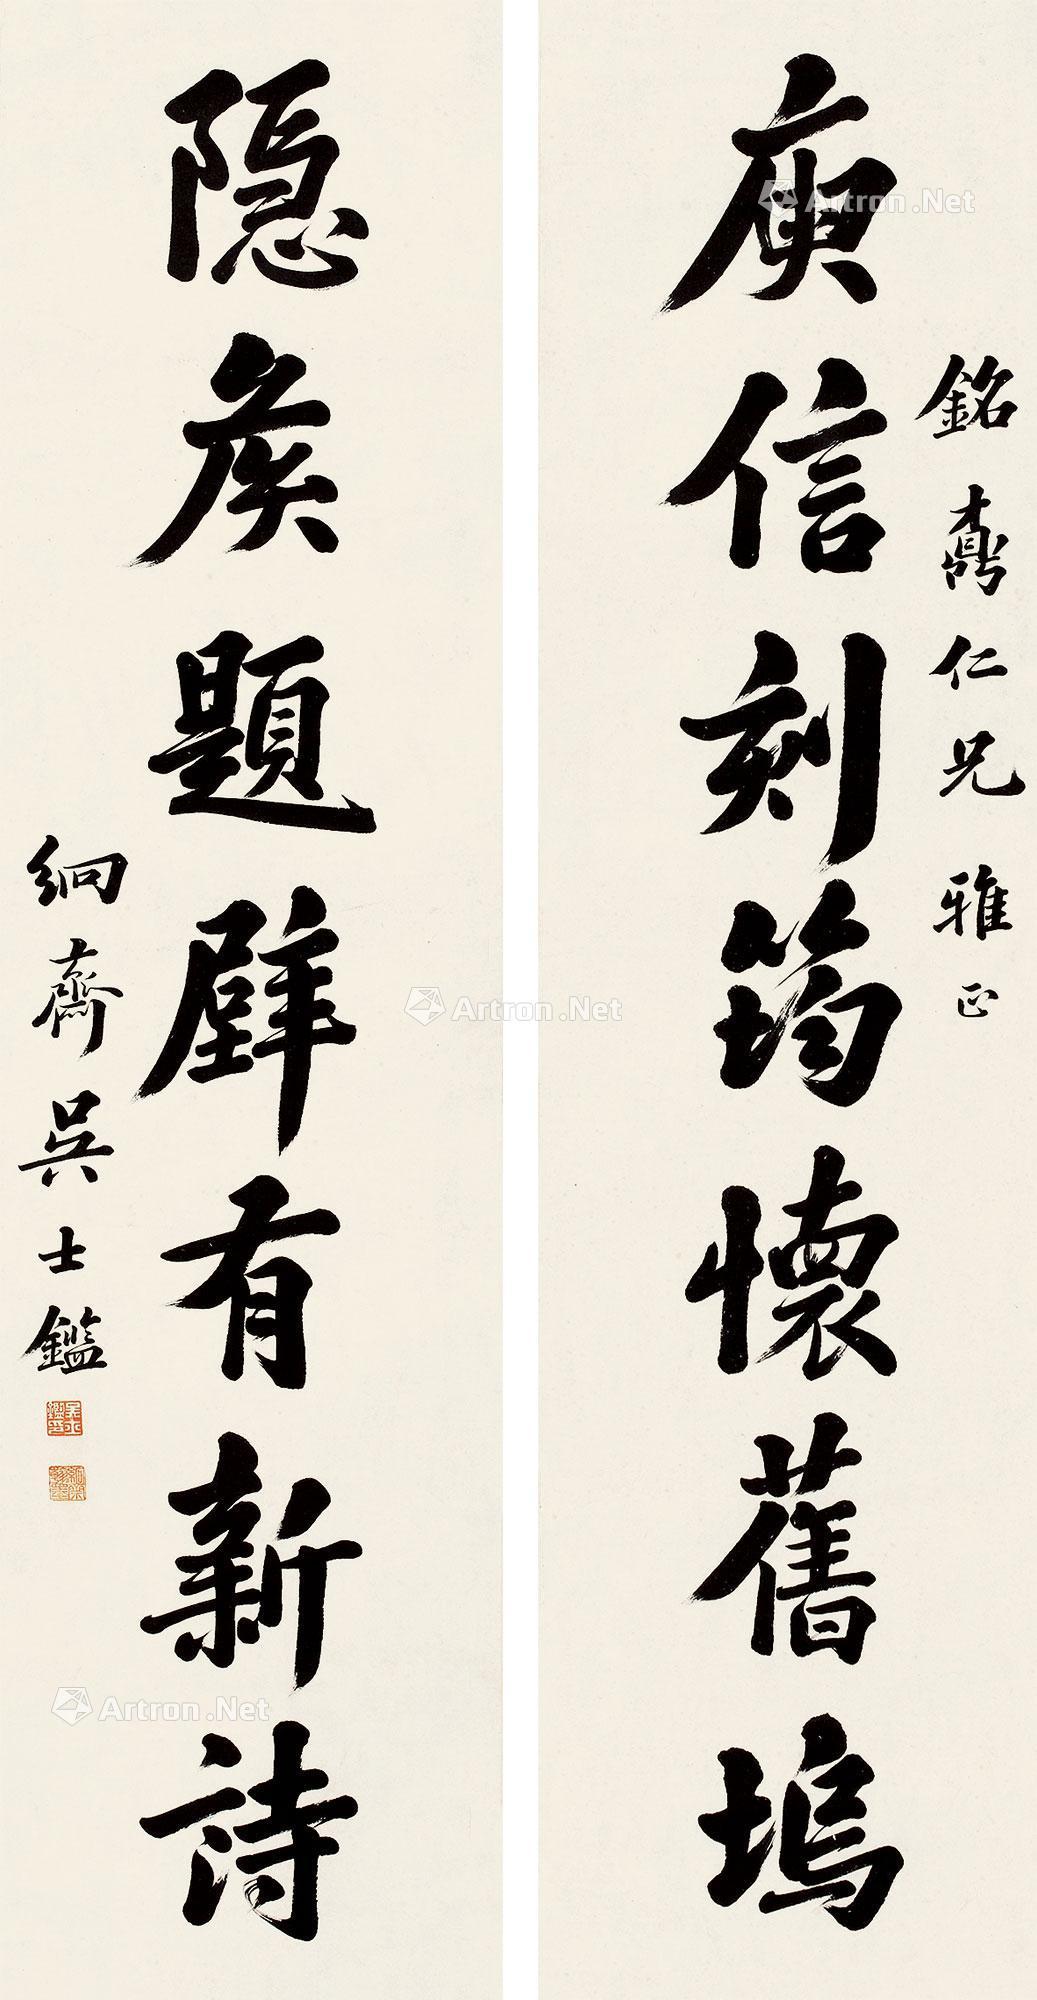 庾信刻筠懷舊塢
銘鼒仁兄雅正
隐矦題壁有新詩
絅齋吳士鑑
Artron.Net
Artron.Net
Artron.Net